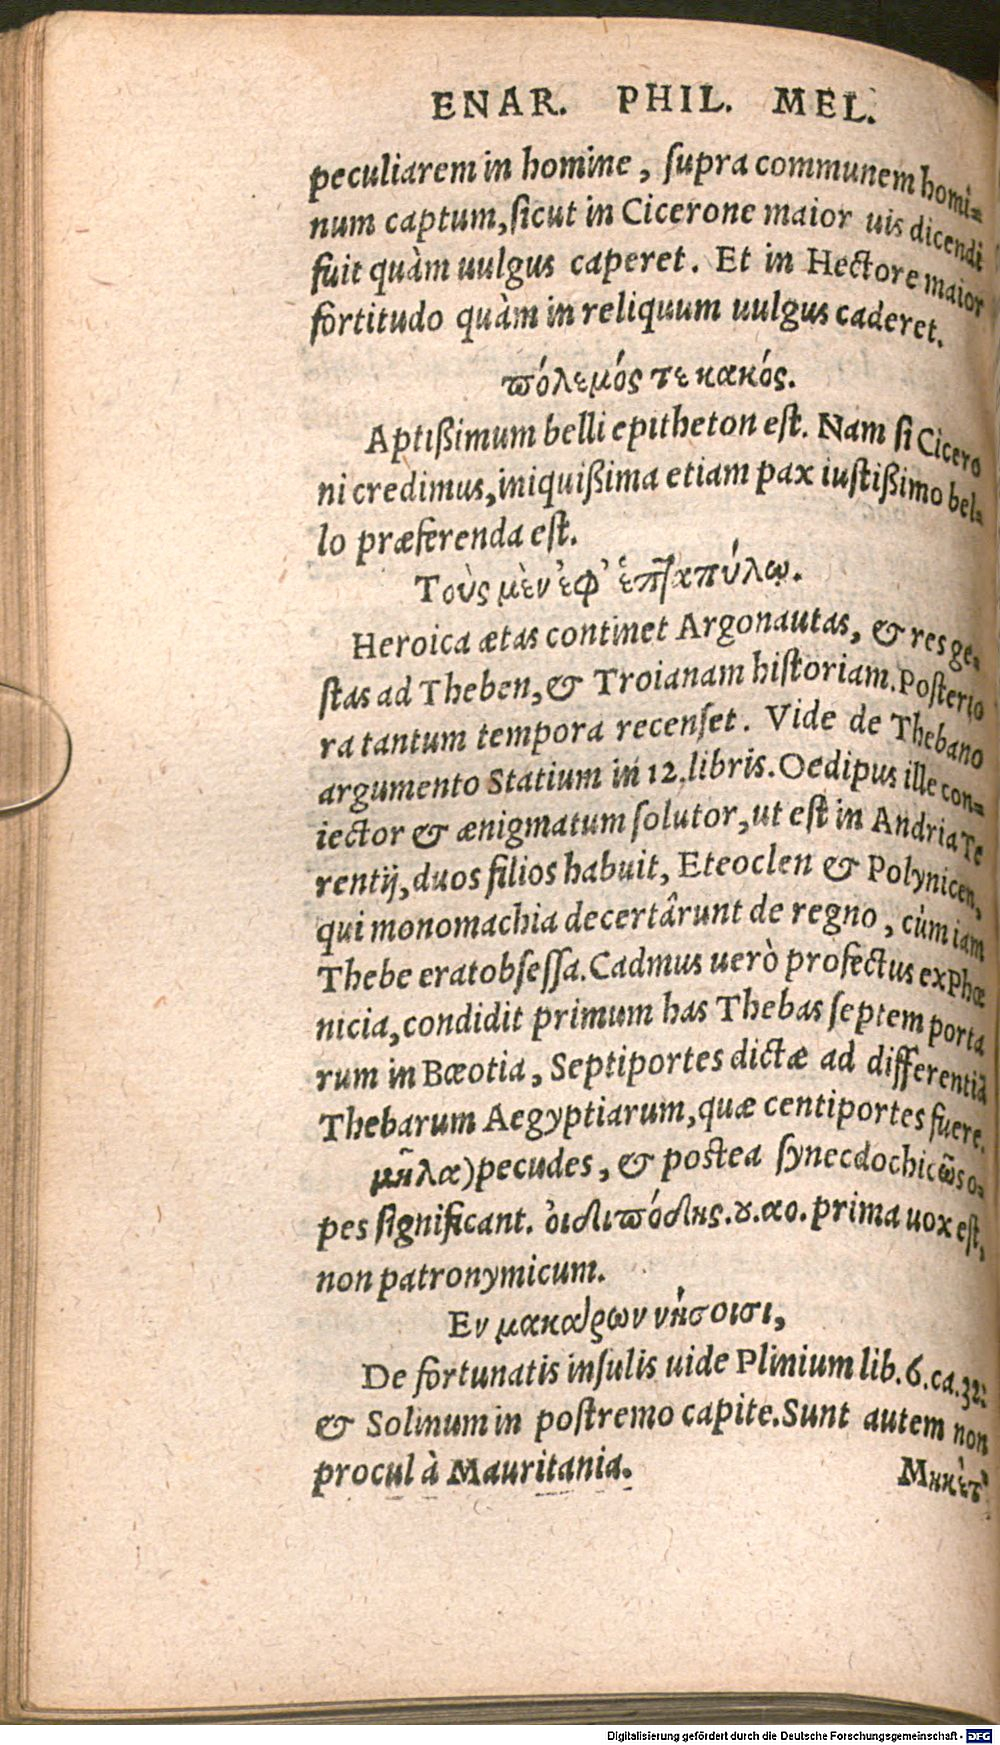 ENAR. PHIL. MEL.
peculiarem in homine, ſupra communem homi=
num captum, ſicut in Cicerone maior uis dicendi
fuit quàm uulgus caperet. Et in Hectore maior
fortitudo quàm in reliquum uulgus caderet.
πόλεμός τε κακός.
Aptißimum belli epitheton eſt. Nam ſi Cicero
ni credimus, iniquißima etiam pax iuſtißimo bel=
lo præferenda eſt.
Τοὺς μὲν ἐφ' ἑπταπύλῳ.
Heroica ætas continet Argonautas, & res ge=
ſtas ad Theben, & Troianam hiſtoriam. Poſterio
ra tantum tempora recenſet. Vide de Thebano
argumento Statium in 12. libris. Oedipus ille con=
iector & ænigmatum ſolutor, ut eſt in Andria Te
rentij, duos filios habuit, Eteoclen & Polynicen,
qui monomachia decertârunt de regno, cùm iam
Thebe erat obſeſſa. Cadmus uerò profectus ex Phœ
nicia, condidit primum has Thebas ſeptem porta
rum in Bœotia, Septiportes dictæ ad differentiã
Thebarum Aegyptiarum, quæ centiportes fuere.
μῆλα) pecudes, & poſtea ſynecdochicῶs o=
pes ſignificant. ὀιδιπόδης. ȣ. αο. prima uox eſt,
non patronymicum.
Εν μακάρων νήσοισι,
De fortunatis inſulis uide Plinium lib. 6. ca. 32.
& Solinum in poſtremo capite. Sunt autem non
procul à Mauritania.
Μηκὲτ'
Digitalisierung gefördert durch die Deutsche Forschungsgemeinschaft - DFG